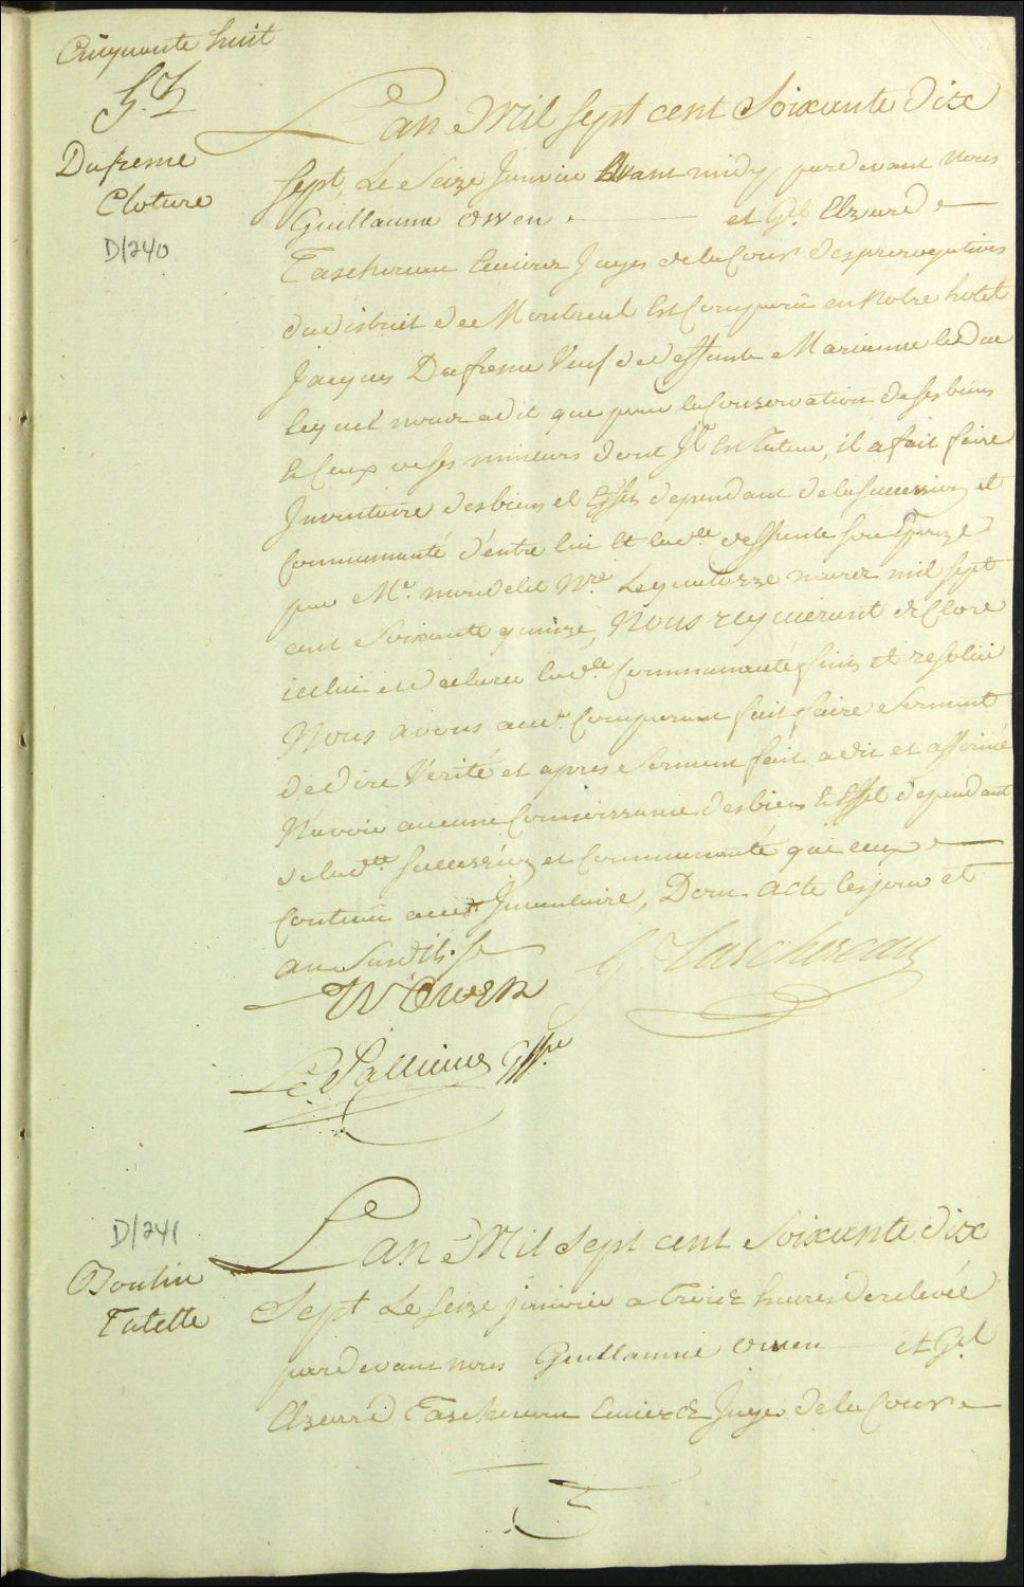 Cinquante huit
Dufresne
Cloture
D/240
Lan Mil Sept cent Soixante dix
Sept, Le Seize Janvier Avant midy, pardevant Nous
Guillaume Owen et Gl. Elzeard
Taschereau Ecuiers Juges de la Cour des prerogatives
du district de Montreal Est Comparû en Notre hotel
Jacques Dufresne Veuf de deffunte Marianne leDuc
lequel nous a dit que pour la Conservation de ses biens
Et Ceux de ses mineurs dont Jl Est Tuteur, il a fait faire
Jnventaire des biens et Effets dependant de la Succession et
Communauté d'entre lui Et lade. deffunte son Epouze
par Me. mondelet Nre. Le quatorze mars mil sept
cent Soixante quinze, Nous requierant de Clore
icelui et declarer lade. Communauté finie et resolüe
Nous avons audt. Comparant fait faire Serment
de dire Vérité et apres Serment fait a dit et affirmé
N'avoir aucune Connoissance des biens Et Effets dependant
de ladte. Succession et Communauté que ceux
Contenu audt. Jnventaire, Dont Acte les jour et
an Susdits.
W Owen G Taschereau
Le Pallieur Gffier
D/241
Boulin
Tutelle
Lan Mil Sept cent Soixante dix
Sept Le Seize janvier a trois heures de relevée
pardevant nous Guillaume Owen et Gel
Elzeard Taschereau Ecuiers Juges de la Cour